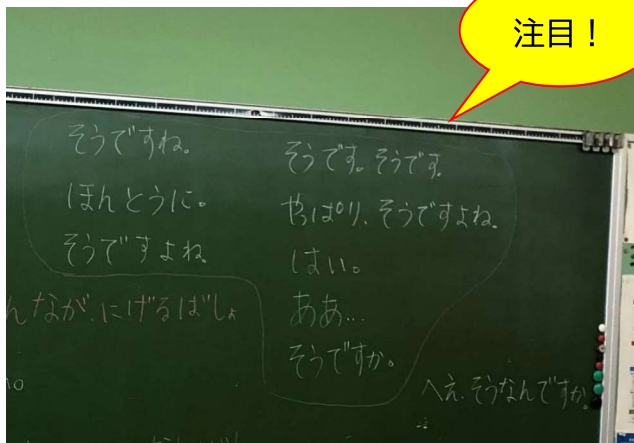 注目！
そうですね。
ほんとうに。
そうですよね。
そうです。そうです。
やっぱり、そうですよね。
はい。
ああ…
そうですか。
んなが、にげるばしょ
へえ、そうなんですか。